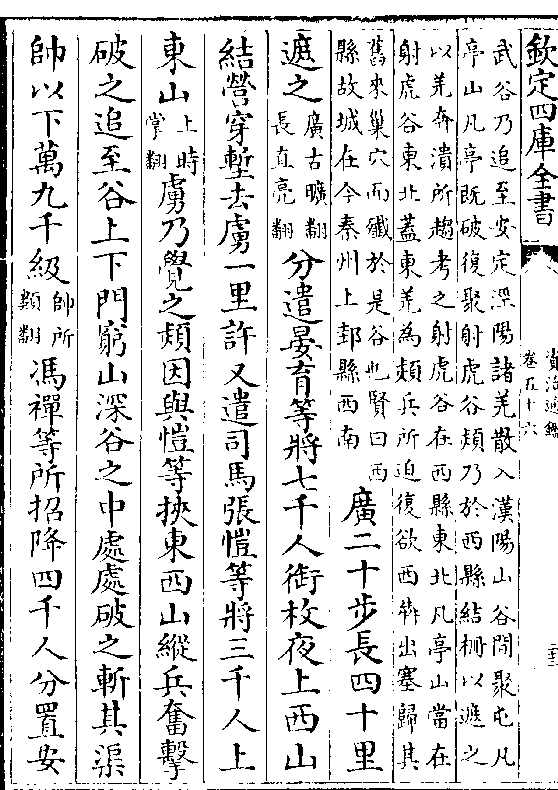 欽定四庫全書
資治通鑑
卷五十六
武谷乃追至安定涇陽諸羌散入漢陽山谷間聚屯凡
亭山凡亭既破復聚射虎谷熲乃於西縣結柵以遮之
以羌奔潰所趨考之射虎谷在西縣東北凡亭山當在
射虎谷東北蓋東羌為熲兵所迫復欲西犇出塞歸其
舊來巢穴而殲於是谷也賢曰西
縣故城在今秦州上邽縣西南
廣二十步長四十里
遮之
廣古曠翻
長直亮翻
分遣晏育等將七千人銜枚夜上西山
結營穿塹去虜一里許又遣司馬張愷等將三千人上
東山
上時
掌翻
虜乃覺之熲因與愷等挾東西山縱兵奮擊
破之追至谷上下門窮山深谷之中處處破之斬其渠
帥以下萬九千級
帥所
類翻
馮禪等所招降四千人分置安